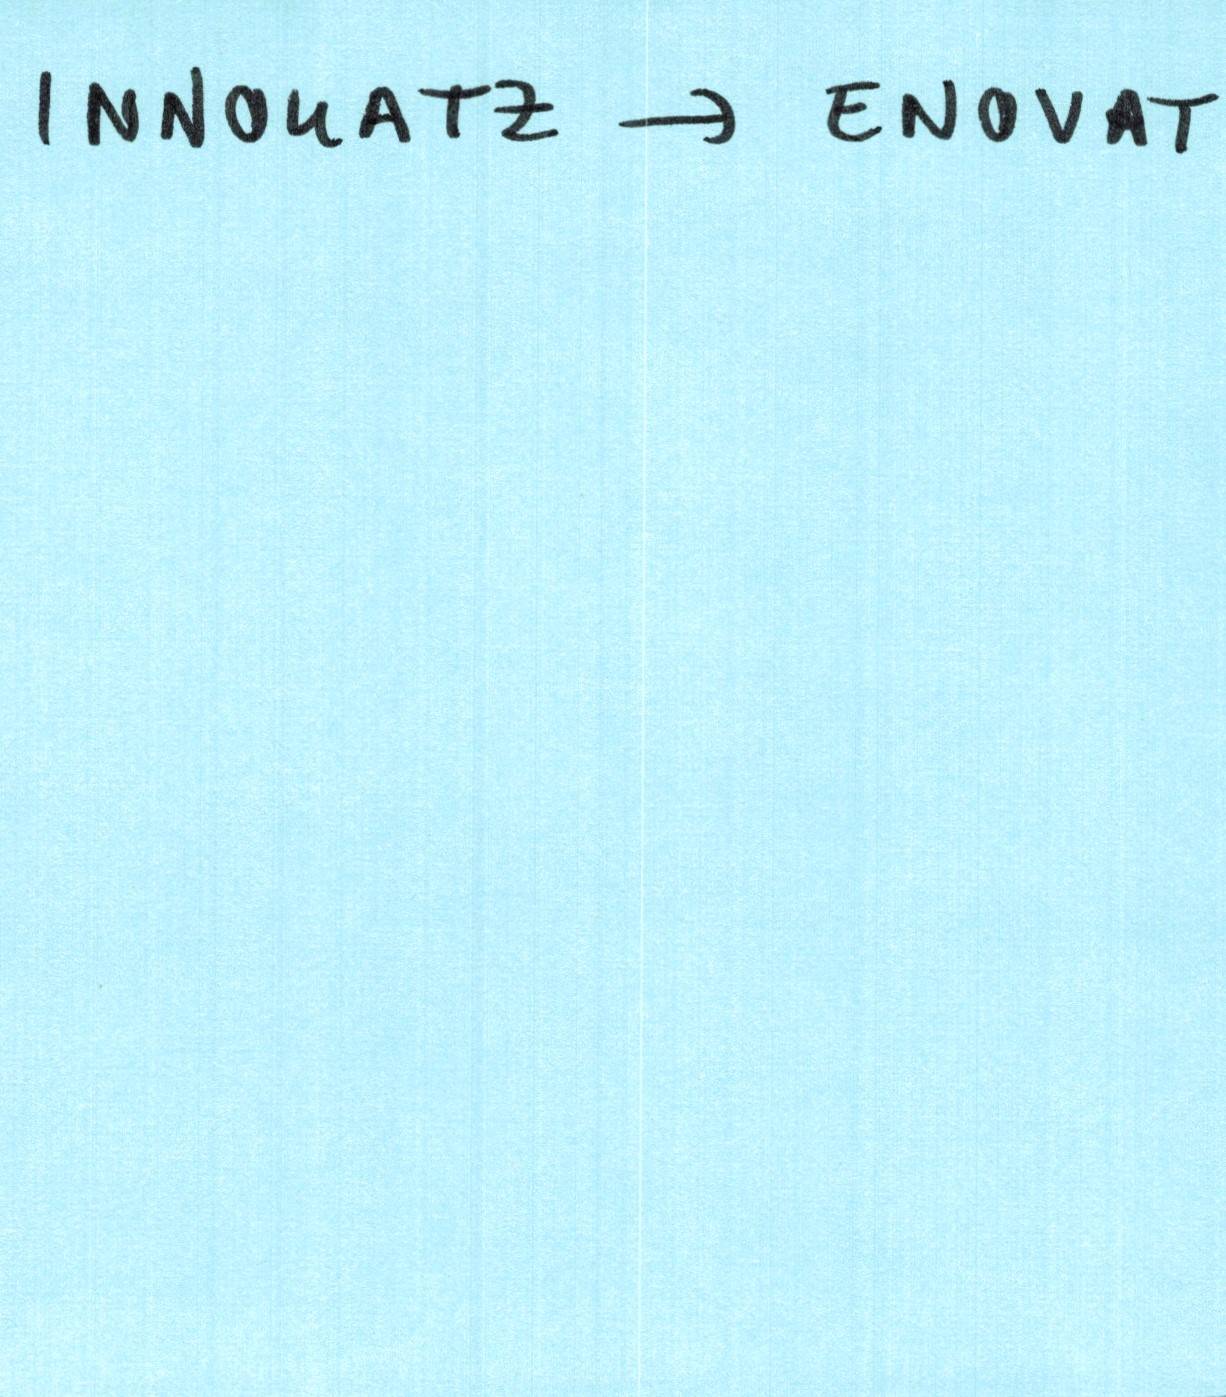 INNOUATZ → ENOVAT